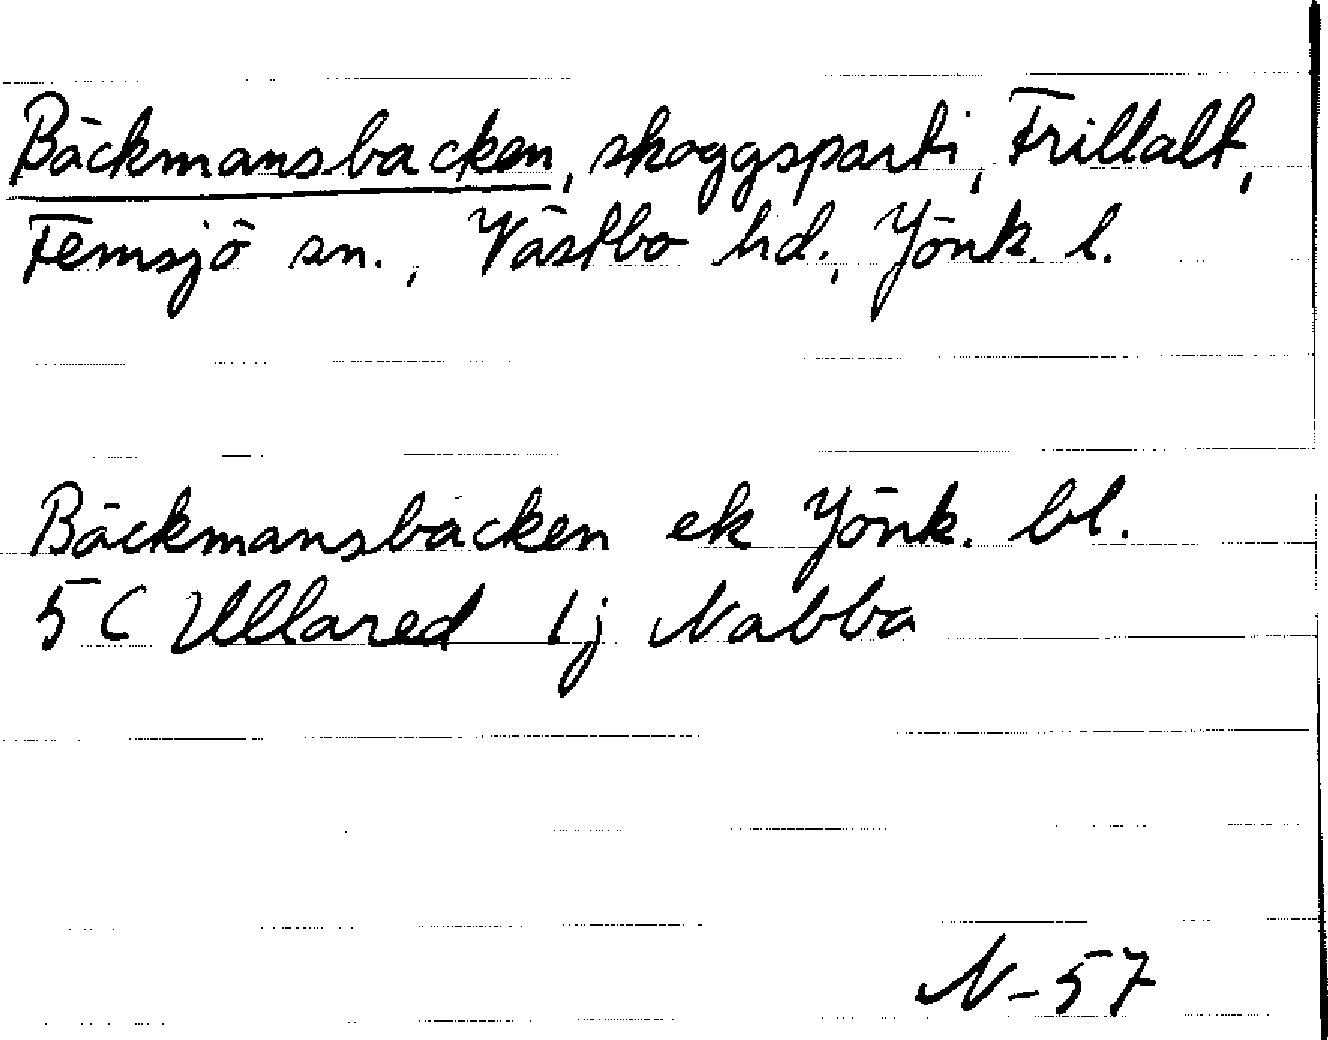 Bäckmansbacken, skoggsparti, Frillalt,
Femsjö sn., Västbo hd., Jönk. l.
Bäckmansbacken ek Jönk. bl.
5C Ullared 1j Nabba
N-57